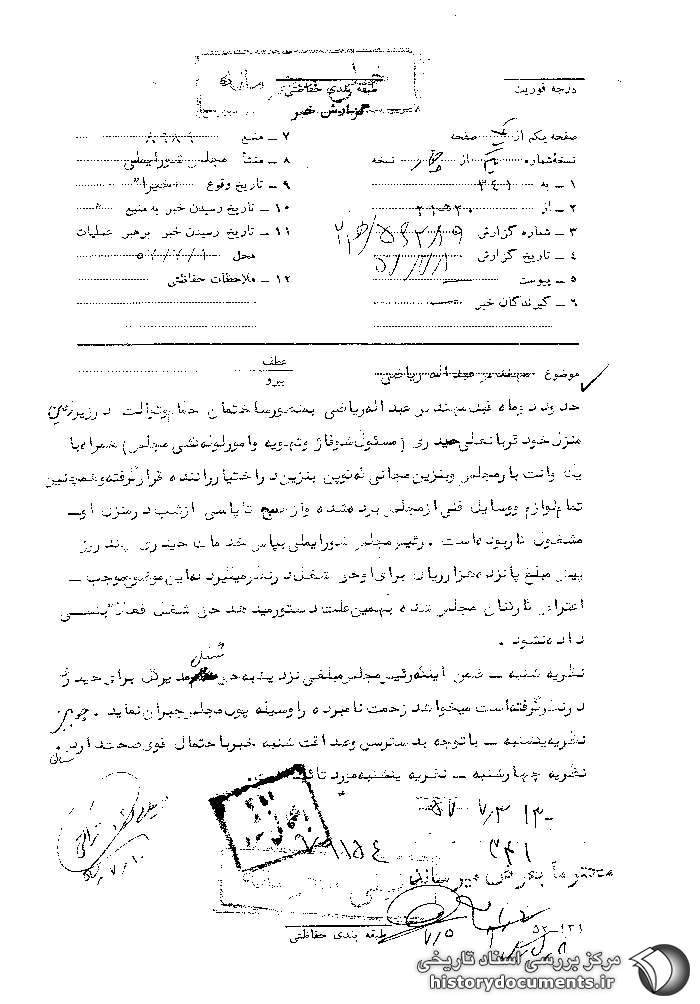 درجه فوریت
طبقه بندی حفاظتی
گزارش خبر
صفحه یکم از یک صفحه
نسخه شماره یک از چهار نسخه
۱ ـ به ۳۴۱
۲ ـ از ۲۰ ه ۲۱
۳ ـ شماره گزارش
۴ ـ تاریخ گزارش
۵ ـ پیوست
۶ ـ گیرندگان خبر
۷ ـ منبع
۸ ـ منشأ مجلس شورایملی
۹ ـ تاریخ وقوع اخیرا"
۱۰ ـ تاریخ رسیدن خبر به منبع
۱۱ ـ تاریخ رسیدن خبر برهبر عملیات
محل
۱۲ ـ ملاحظات حفاظتی
عطف
پیرو
موضوع مهندس عبداله ریاضی
حدود دوماه قبل مهندس عبداله ریاضی بمنظور ساختمان حمام و توالت در زیرزمین
منزل خود قربانعلی حیدری (مسئول شوفاژ و تهویه و امور لوله کشی مجلس) همراه با
یک وانت بار مجلس و بنزین مجانی که کوپن بنزین در اختیار راننده قرار گرفته و همچنین
تمام لوازم و وسایل فنی از مجلس برده شده و از صبح تا پاسی از شب در منزل او ـ
مشغول کار بوده است . رئیس مجلس شورایملی بپاس خدمات حیدری چند روز
پیش مبلغ پانزده هزار ریال برای او حق شغل در نظر میگیرد که این موضوع موجب ـ
اعتراض کارکنان مجلس شده بهمین علت دستور میدهد حق شغل فعلا" بکسی
داده نشود .
نظریه شنبه ـ ضمن اینکه رئیس مجلس مبلغی نزدیک به حق شغل مدیرکل برای حیدری
در نظر گرفته است میخواهد زحمت نامبرده را وسیله پول مجلس جبران نماید .
نظریه یکشنبه ـ با توجه به دسترسی و صداقت شنبه خبر باحتمال قوی صحت دارد
نظریه چهارشنبه ـ نظریه یکشنبه مورد تائید
۳۴۱
مستقیما بعرض میرساند
طبقه بندی حفاظتی
مرکز بررسی اسناد تاریخی
historydocuments.ir